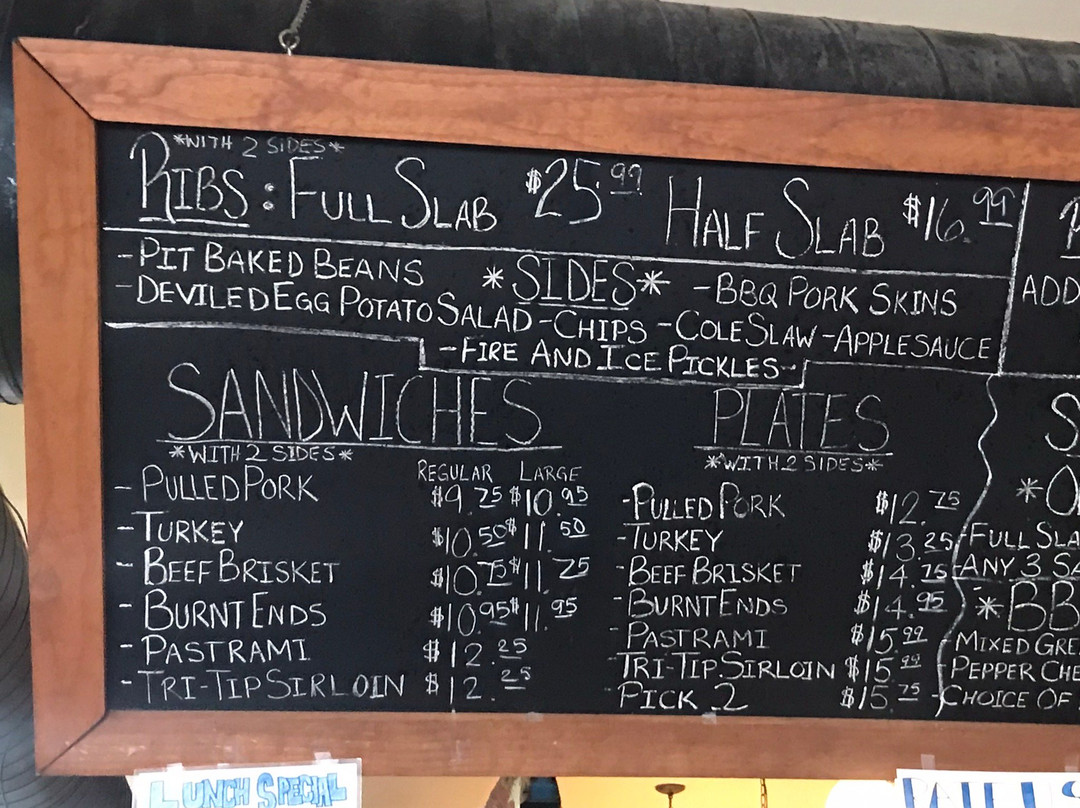 *WITH 2 SIDES*
RIBS: FULL SLAB $25.99 HALF SLAB $16.99
-PIT BAKED BEANS *SIDES* -BBQ PORK SKINS
-DEVILED EGG POTATO SALAD -CHIPS -COLE SLAW -APPLESAUCE
-FIRE AND ICE PICKLES-
SANDWICHES
*WITH 2 SIDES*
REGULAR LARGE
-PULLED PORK $9.75 $10.95
-TURKEY $10.50 $11.50
-BEEF BRISKET $10.75 $11.75
-BURNT ENDS $10.95 $11.95
-PASTRAMI $12.25
-TRI-TIP SIRLOIN $12.25
PLATES
*WITH 2 SIDES*
-PULLED PORK $12.75
-TURKEY $13.25
-BEEF BRISKET $14.75
-BURNT ENDS $14.95
-PASTRAMI $15.99
-TRI-TIP SIRLOIN $15.99
-PICK 2 $15.75
ADD
S
*O
-FULL SLA
-ANY 3 SA
*BB
MIXED GRE
PEPPER CHE
-CHOICE OF
LUNCH SPECIAL